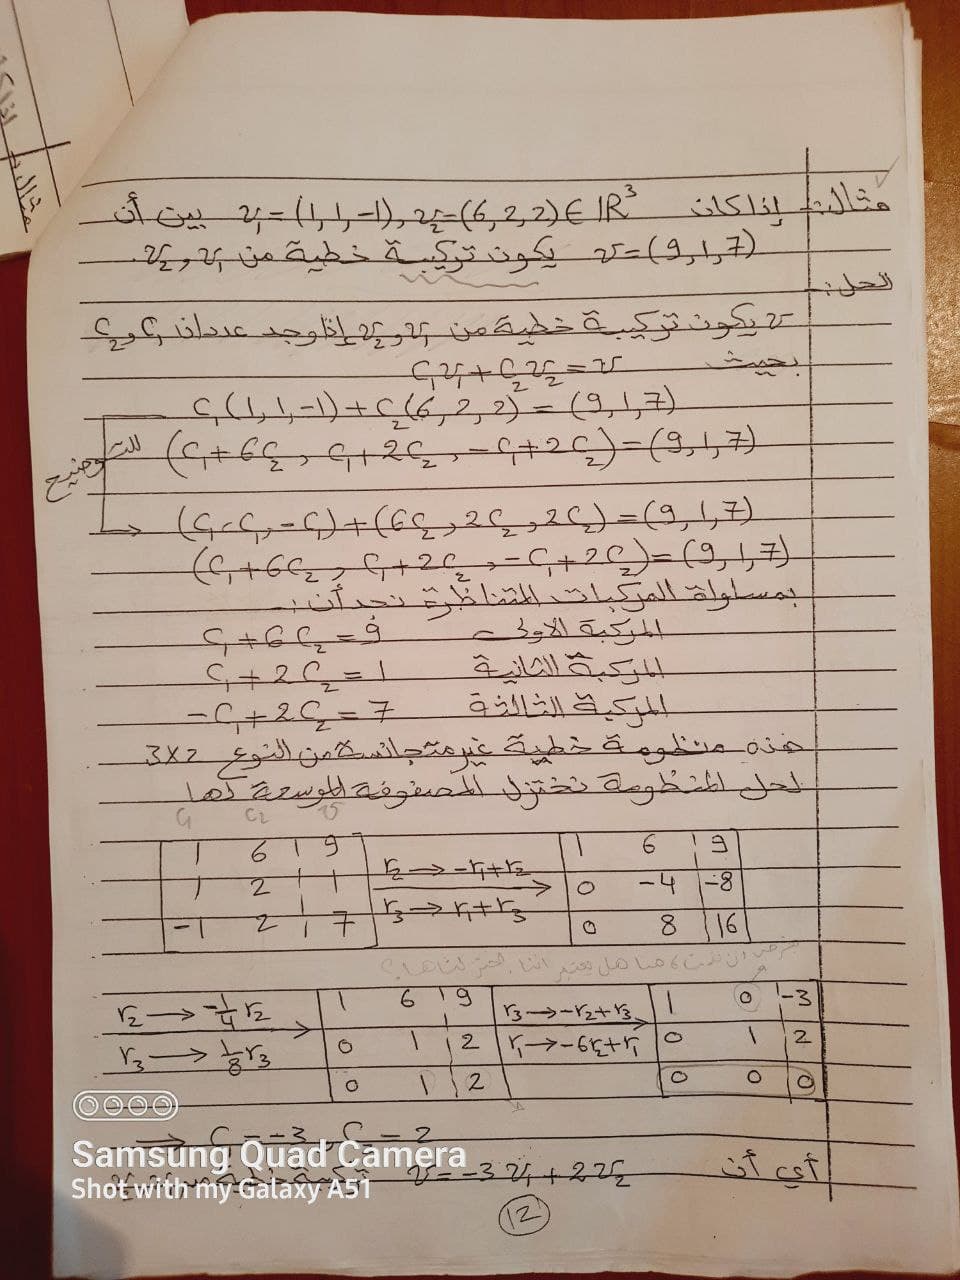 مثال:- إذا كان v₁=(1,1,-1), v₂=(6,2,2)∈ℝ³ بين أن
v=(9,1,7) يكون تركيبة خطية من v₁ و v₂.
الحل:-
v يكون تركيبة خطية من v₁ و v₂ إذا وجد عددان C₁ و C₂
بحيث C₁v₁+C₂v₂=v
C₁(1,1,-1)+C₂(6,2,2)=(9,1,7)
(C₁+6C₂, C₁+2C₂, -C₁+2C₂)=(9,1,7)
للتوضيح
(C₁, C₁, -C₁)+(6C₂, 2C₂, 2C₂)=(9,1,7)
(C₁+6C₂, C₁+2C₂, -C₁+2C₂)=(9,1,7)
بمساواة المركبات المتناظرة نجد أن:-
المركبة الأولى C₁+6C₂=9
المركبة الثانية C₁+2C₂=1
المركبة الثالثة -C₁+2C₂=7
هذه منظومة خطية غير متجانسة من النوع 3x2
لحل المنظومة نختزل المصفوفة الموسعة لها
C₁ C₂ v
1 6 | 9 r₂→-r₁+r₂ 1 6 | 9
1 2 | 1 r₃→r₁+r₃ 0 -4 | -8
-1 2 | 7 0 8 | 16
r₂→-1/4 r₂ 1 6 | 9 r₃→-r₂+r₃ 1 0 | -3
r₃→1/8 r₃ 0 1 | 2 r₁→-6r₂+r₁ 0 1 | 2
0 1 | 2 0 0 | 0
⇒ C₁=-3, C₂=2
أي أن v=-3v₁+2v₂
Samsung Quad Camera
Shot with my Galaxy A51
12